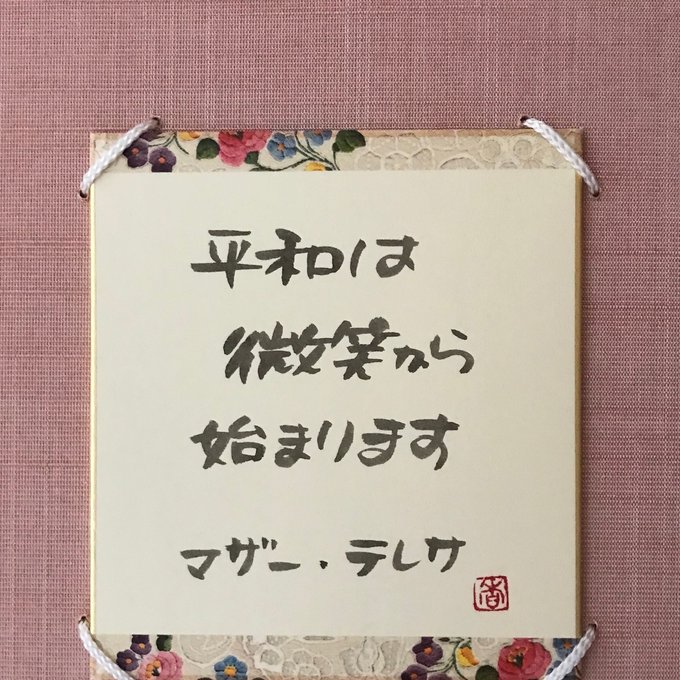 平和は
微笑から
始まります
マザー・テレサ
香